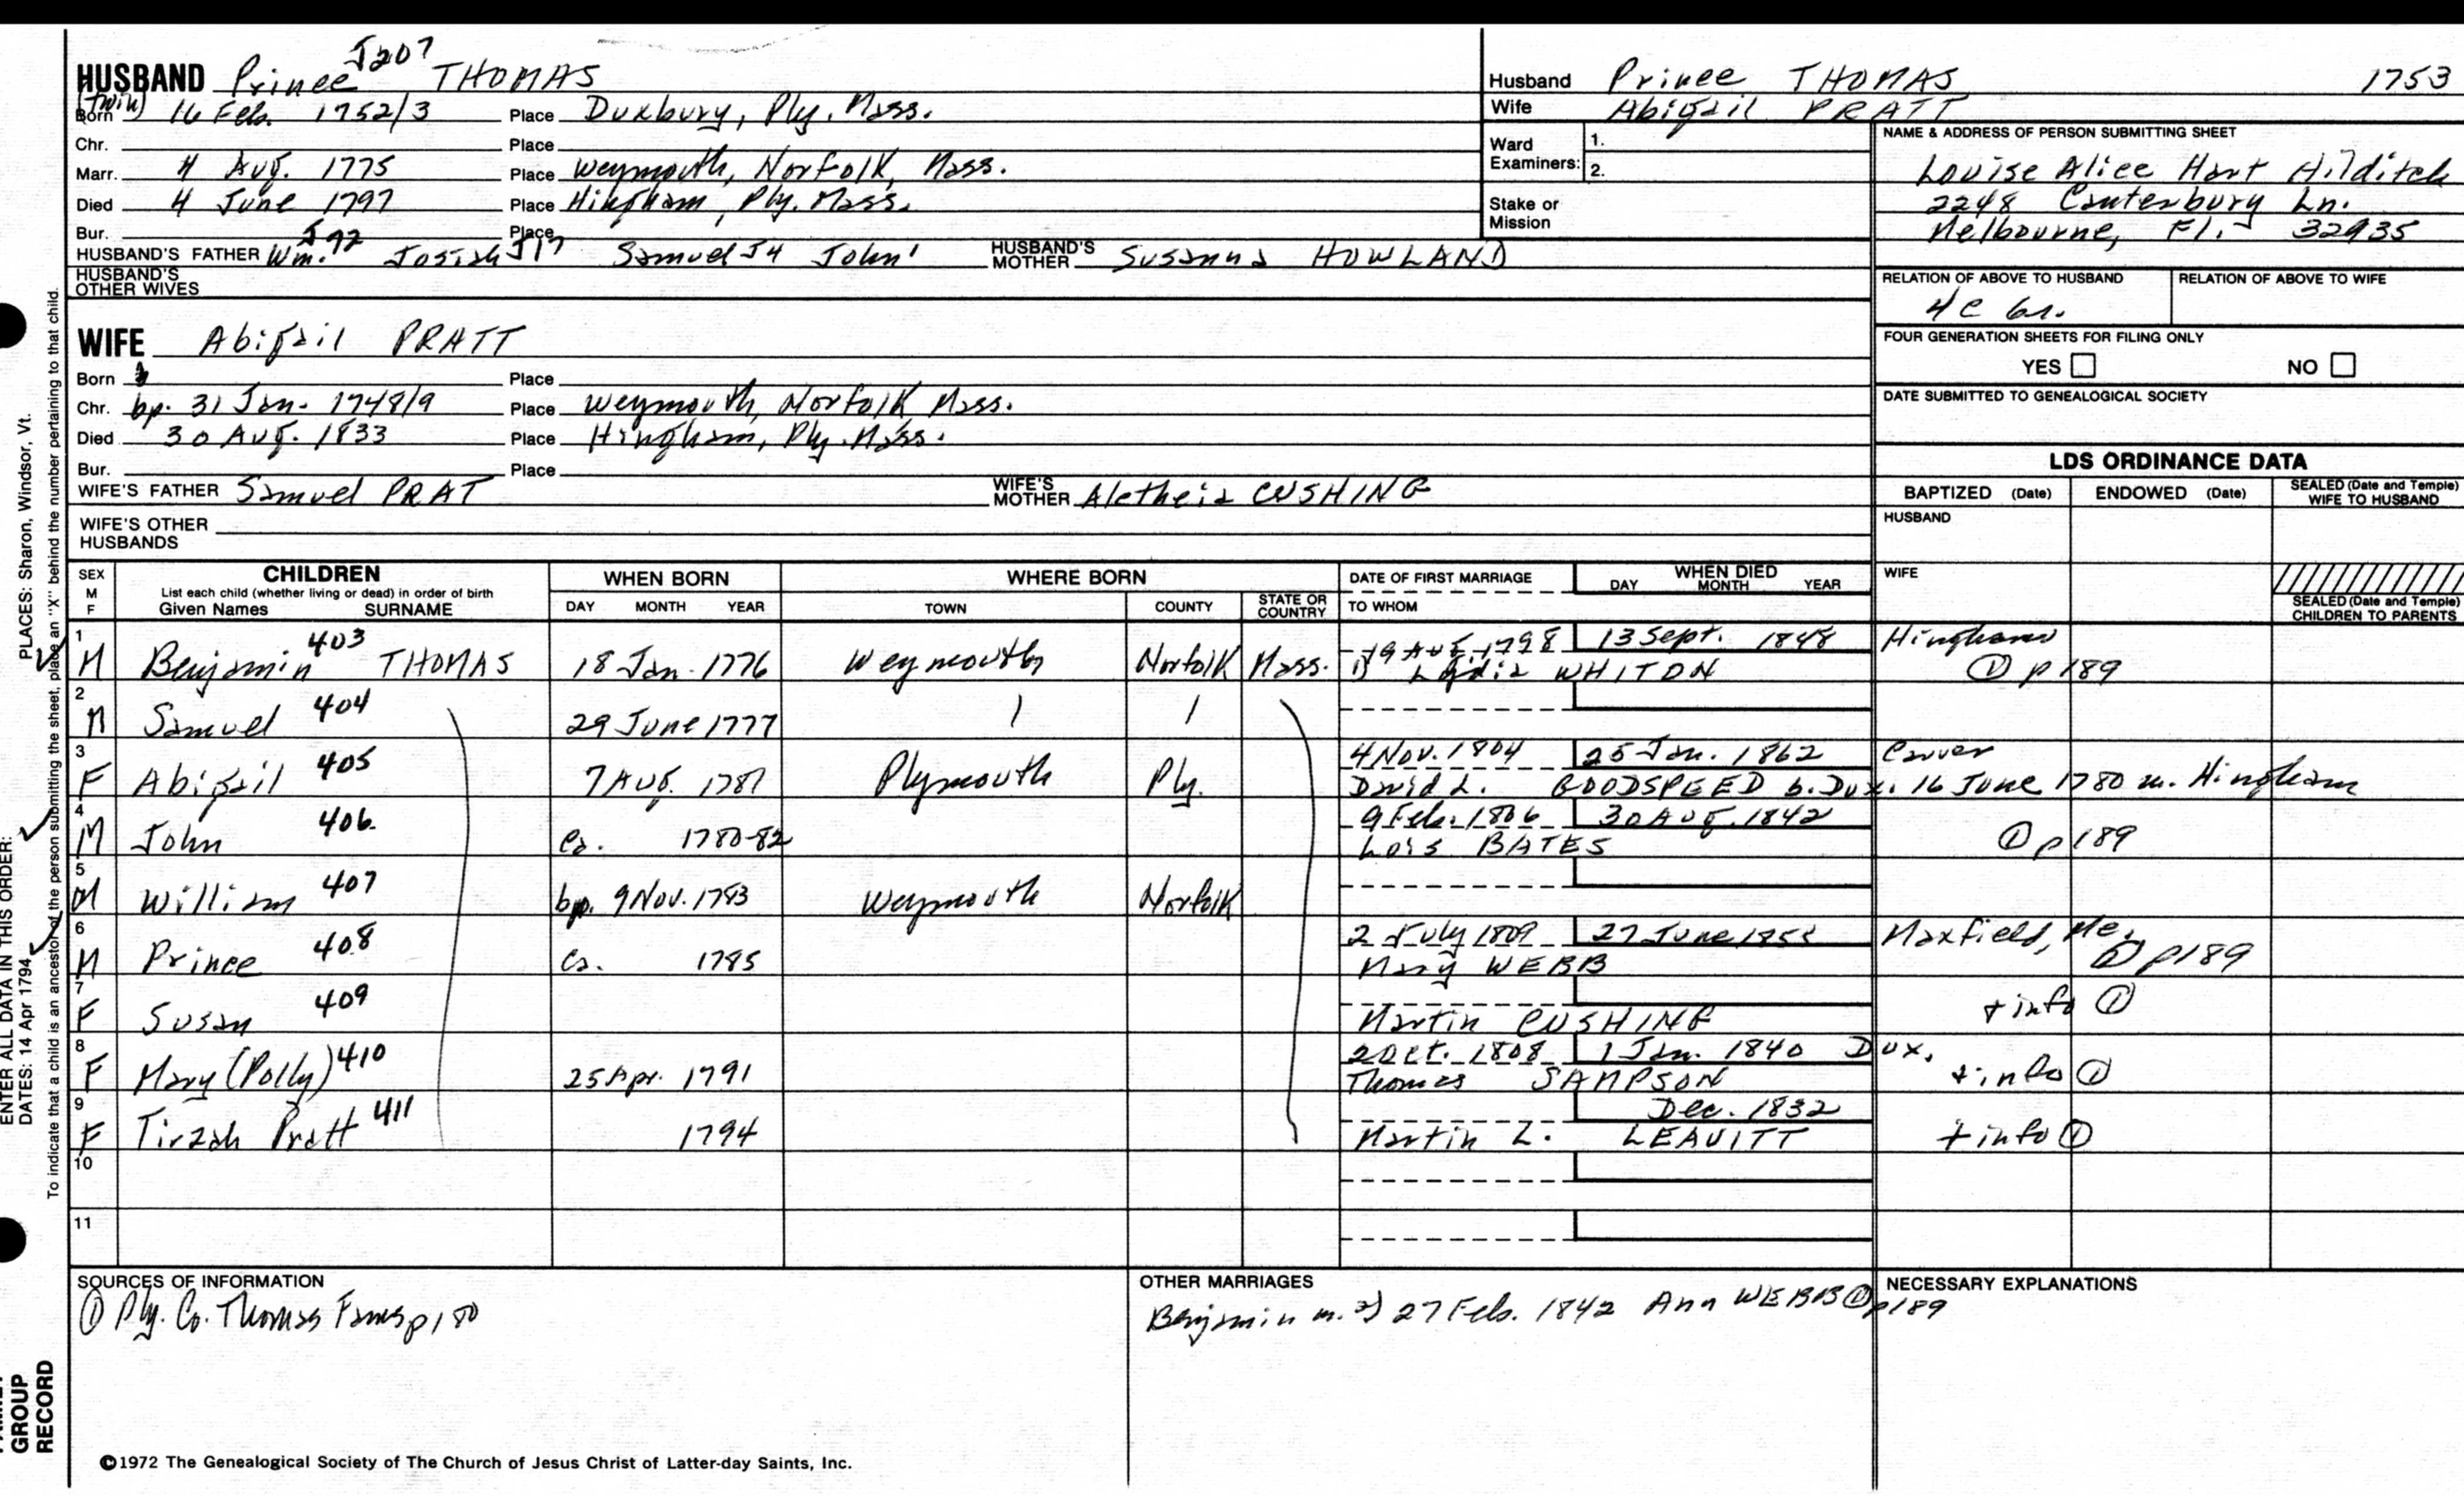 J207
HUSBAND Prince THOMAS
(twin)
Born 16 Feb. 1752/3 Place Duxbury, Ply. Mass.
Chr. Place
Marr. 4 Aug. 1775 Place Weymouth, Norfolk, Mass.
Died 4 June 1797 Place Hingham, Ply. Mass.
Bur. Place
HUSBAND'S FATHER Wm. J92 Josiah J17 Samuel J4 John' HUSBAND'S MOTHER Susanna HOWLAND
HUSBAND'S OTHER WIVES
Husband Prince THOMAS 1753
Wife Abigail PRATT
Ward Examiners: 1.
2.
Stake or Mission
NAME & ADDRESS OF PERSON SUBMITTING SHEET
Louise Alice Hart Hilditch
2248 Canterbury Ln.
Melbourne, Fl. 32935
RELATION OF ABOVE TO HUSBAND RELATION OF ABOVE TO WIFE
4c 6r.
FOUR GENERATION SHEETS FOR FILING ONLY
YES NO
DATE SUBMITTED TO GENEALOGICAL SOCIETY
WIFE Abigail PRATT
Born Place
Chr. bp. 31 Jan. 1748/9 Place Weymouth, Norfolk Mass.
Died 30 Aug. 1833 Place Hingham, Ply. Mass.
Bur. Place
WIFE'S FATHER Samuel PRAT WIFE'S MOTHER Aletheia CUSHING
WIFE'S OTHER HUSBANDS
LDS ORDINANCE DATA
BAPTIZED (Date) ENDOWED (Date) SEALED (Date and Temple) WIFE TO HUSBAND
HUSBAND
WIFE
SEALED (Date and Temple) CHILDREN TO PARENTS
SEX M F
CHILDREN
List each child (whether living or dead) in order of birth
Given Names SURNAME
WHEN BORN
DAY MONTH YEAR
WHERE BORN
TOWN COUNTY STATE OR COUNTRY
DATE OF FIRST MARRIAGE
TO WHOM
WHEN DIED
DAY MONTH YEAR
1 403 19 Aug. 1798 13 Sept. 1848 Hingham
M Benjamin THOMAS 18 Jan. 1776 Weymouth Norfolk Mass. 1) Lydia WHITON ① p189
2 404
M Samuel 29 June 1777
3 405 4 Nov. 1804 25 Jan. 1862 Carver
F Abigail 7 Aug. 1781 Plymouth Ply. David L. GOODSPEED b. Dux. 16 June 1780 m. Hingham
4 406 9 Feb. 1806 30 Aug. 1842
M John ca. 1780-82 Lois BATES ① p189
5 407
M William bp. 9 Nov. 1783 Weymouth Norfolk
6 408 2 July 1809 27 June Maxfield, Me.
M Prince ca. 1785 Mary WEBB ① p189
7 409
F Susan Martin CUSHING + info ①
8 410 2 Oct. 1808 1 Jan. 1840 Dux.
F Mary (Polly) 25 Apr. 1791 Thomas SAMPSON + info ①
9 411 Dec. 1832
F Tirzah Pratt 1794 Martin L. LEAVITT + info ①
10
11
SOURCES OF INFORMATION
① Ply. Co. Thomas Fams p180
OTHER MARRIAGES
Benjamin m. 2) 27 Feb. 1842 Ann WEBB ① p189
NECESSARY EXPLANATIONS
©1972 The Genealogical Society of The Church of Jesus Christ of Latter-day Saints, Inc.
PLACES: Sharon, Windsor, Vt.
To indicate that a child is an ancestor of the person submitting the sheet, place an "X" behind the number pertaining to that child.
ENTER ALL DATA IN THIS ORDER:
DATES: 14 Apr 1794
GROUP
RECORD